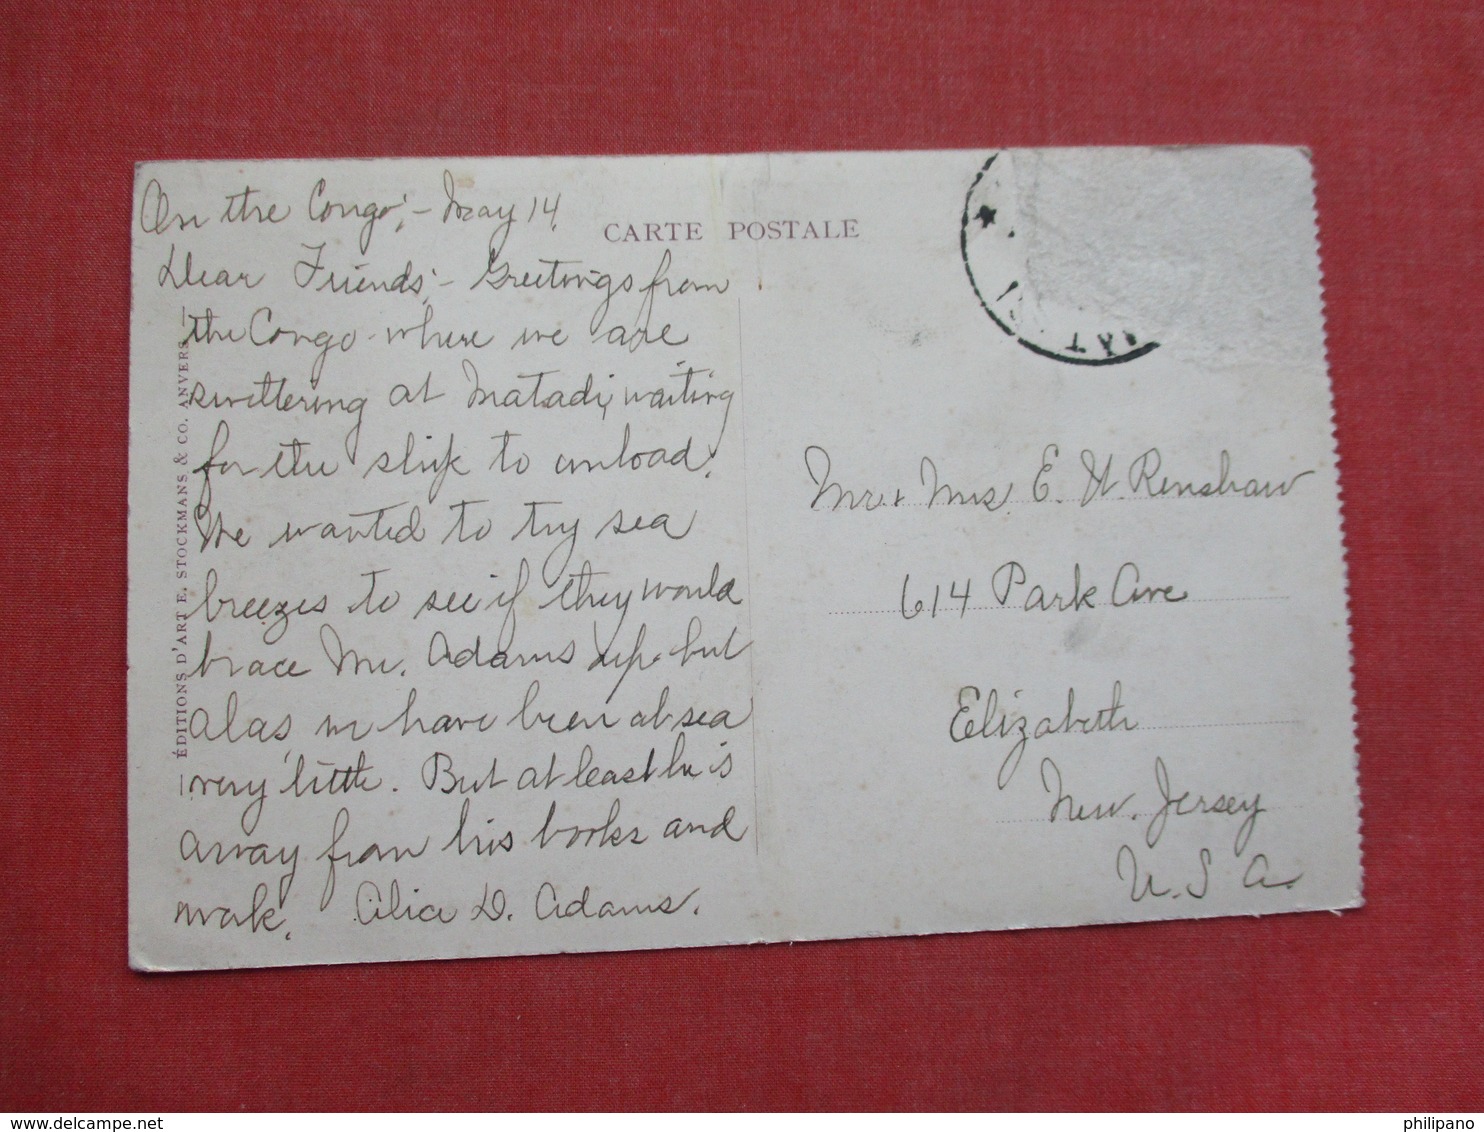 On the Congo,- May 14
CARTE POSTALE
Dear Friends,- Greetings from
the Congo where we are
sweltering at Matadi, waiting
for the ship to unload.
We wanted to try sea
breezes to see if they would
brace Mr. Adams up but
alas, we have been at sea
very little. But at least he is
away from his books and
work. Alice D. Adams.
ÉDITIONS D'ART E. STOCKMANS & CO. ANVERS
Mr. + Mrs. E. H. Renshaw
614 Park Ave
Elizabeth
New Jersey
U. S A.
http://www.delcampe.net
philipano